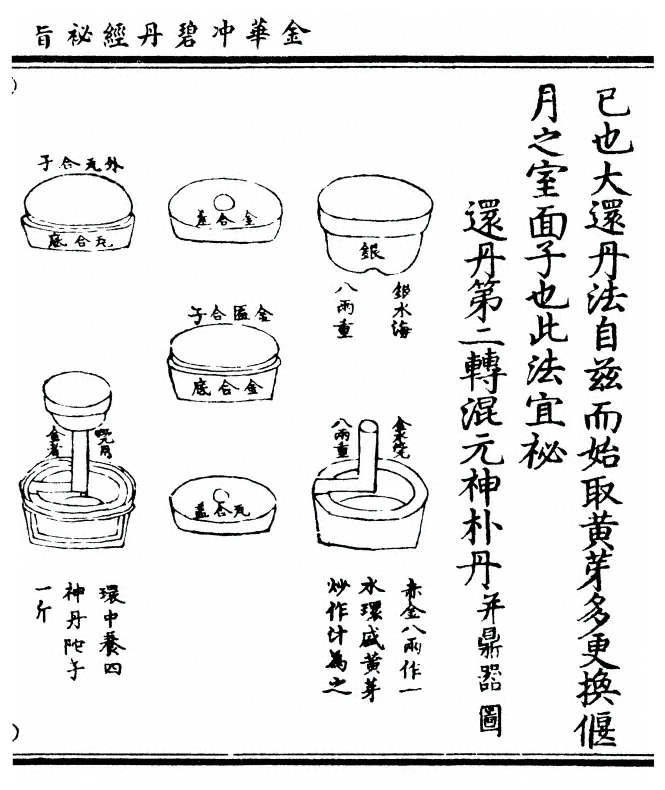 金華冲碧丹經祕旨
已也大還丹法自兹而始取黄芽多更換偃
月之室面子也此法宜祕
還丹第二轉混元神朴丹并鼎器圖
銀
銀水海
八兩重
金水筦
八兩重
赤金八兩作一
水環盛黄芽
炒作汁為之
金合盖
金匱合子
金合底
瓦合盖
外瓦合子
瓦合底
環中養四
神丹陀子
一斤